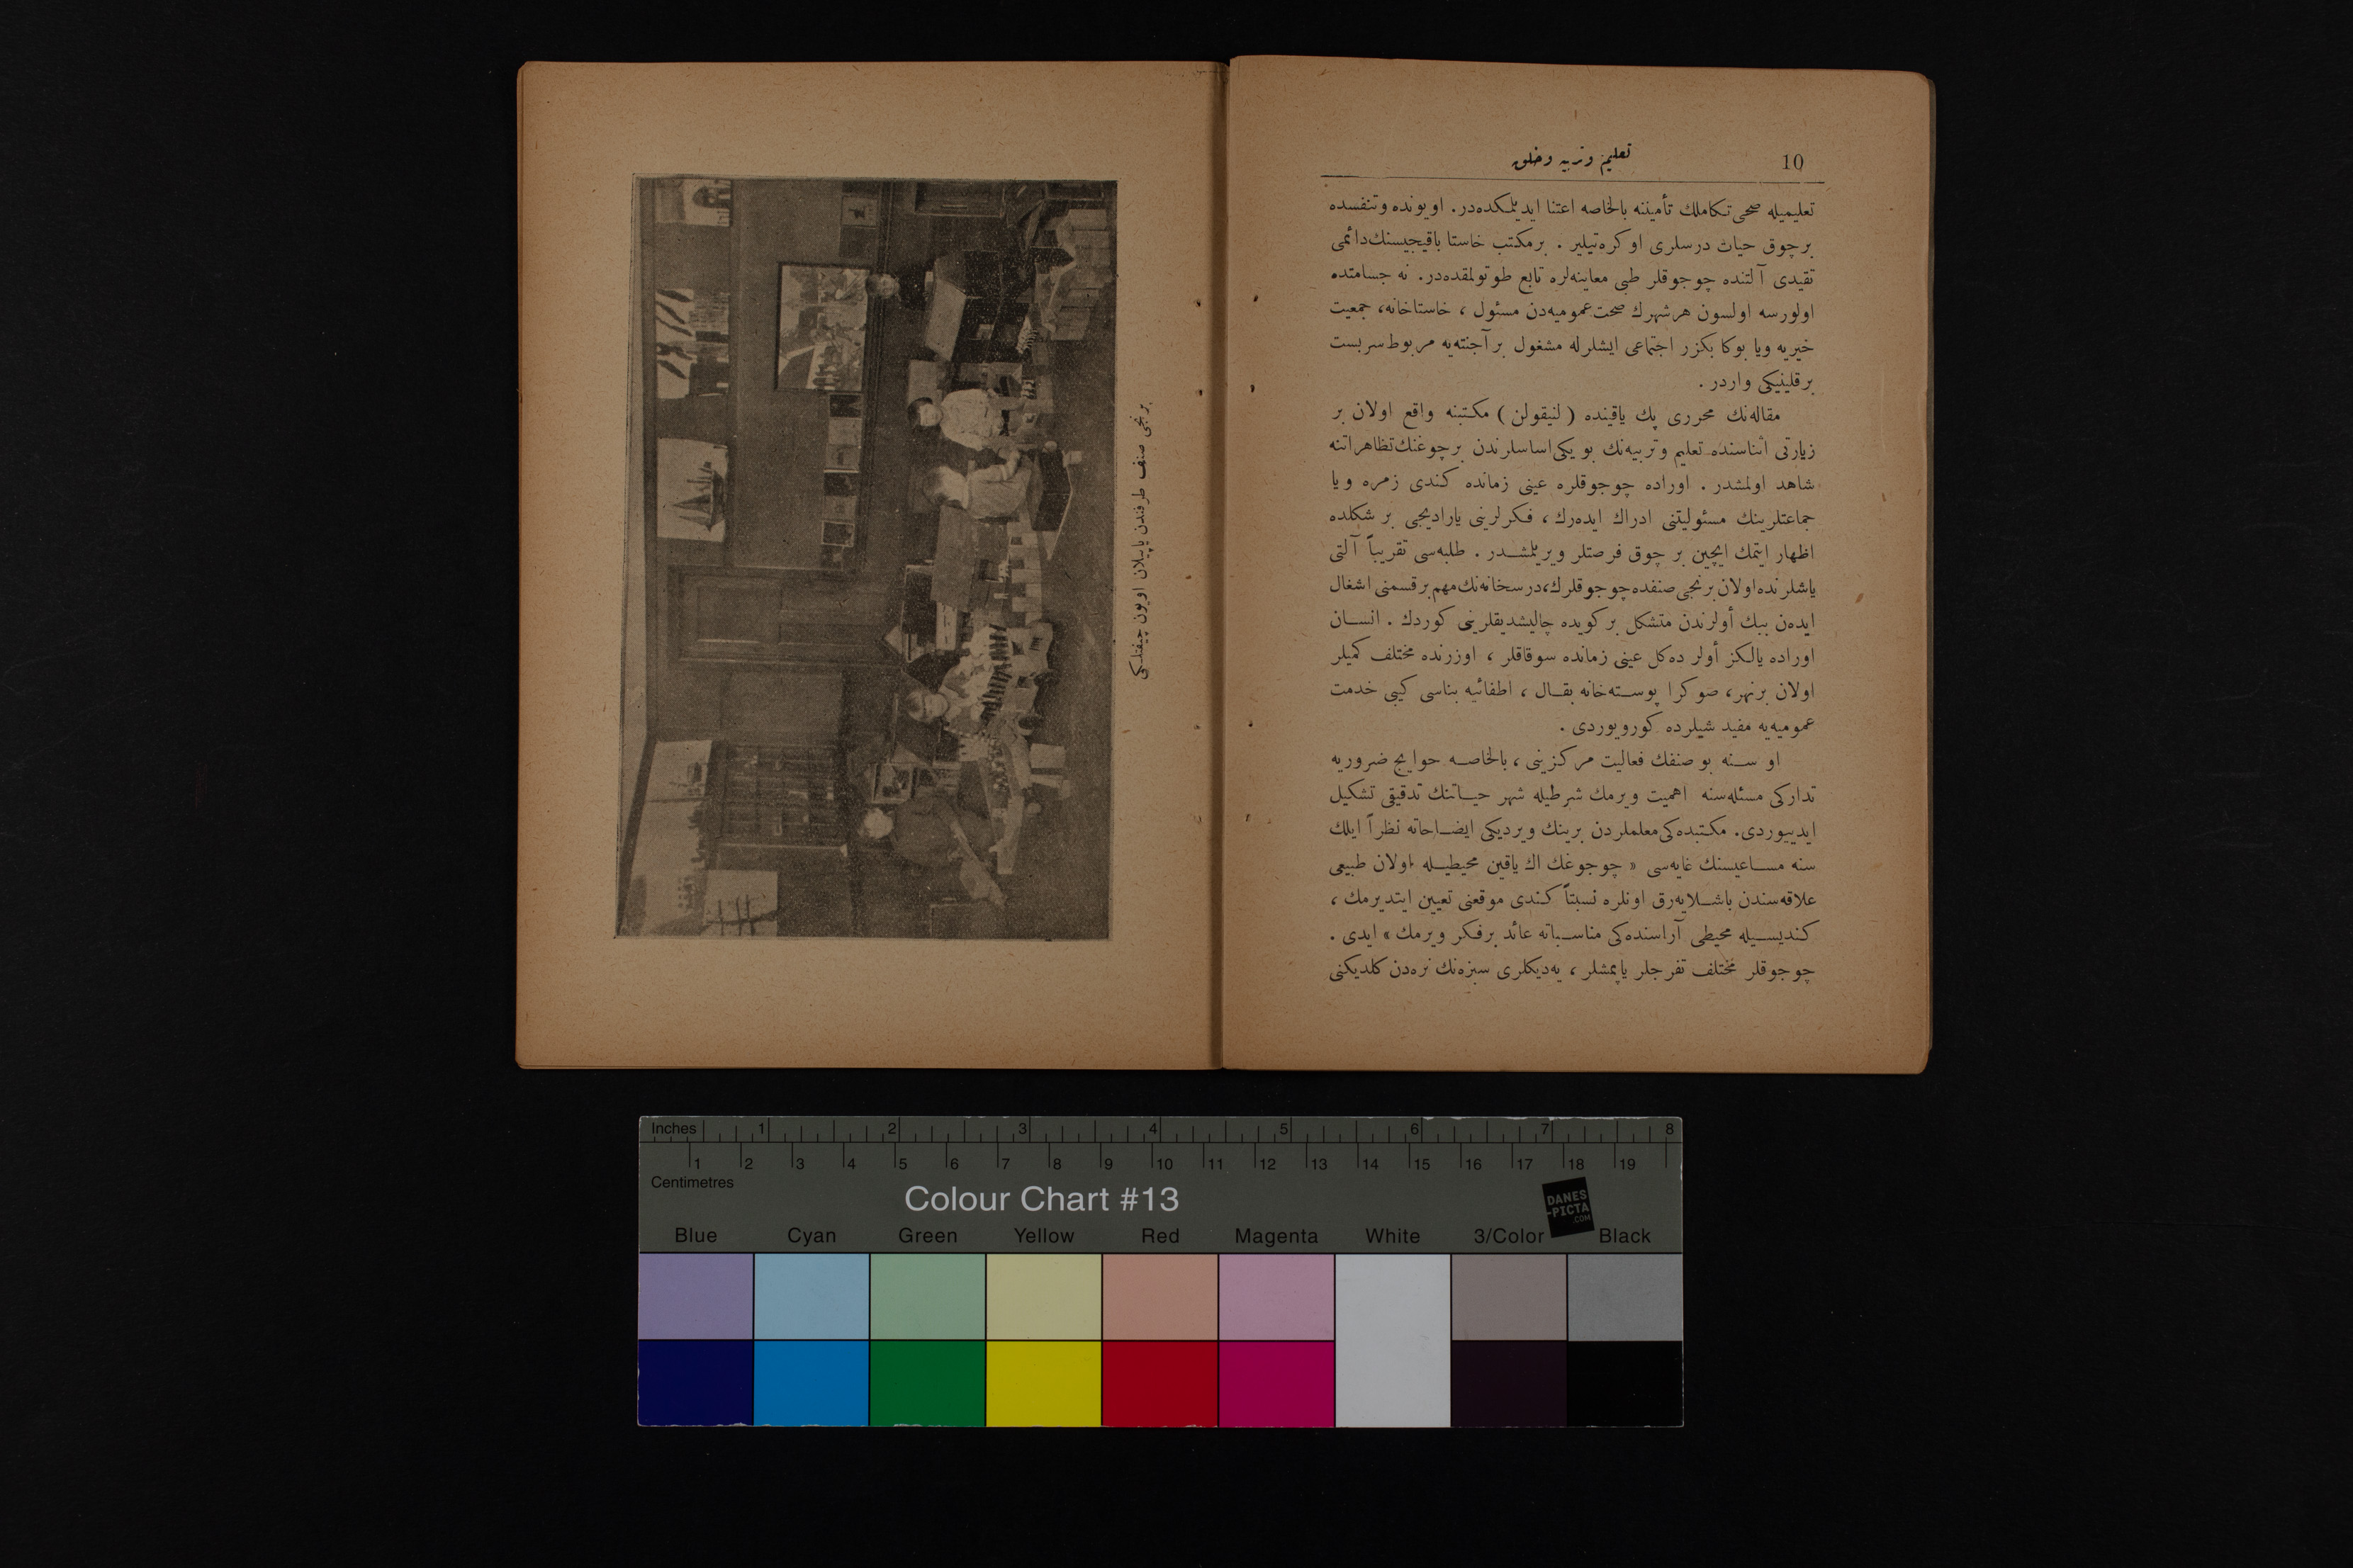 10
تعلیم و تربیه و خلق
تعلیمیله صحی تکاملك تأمیننه بالخاصه اعتنا ایدیلمکده‌در. اویونده و تنفسده
برچوق حیات درسلری اوکره‌تیلیر . برمکتب خاستا باقیجیسنك دائمی
تقیدی آلتنده چوجوقلر طبی معاینه‌لره تابع طوتولمقده‌در. نه جسامتده
اولورسه اولسون هر شهرك صحت عمومیه‌دن مسئول ، خاستاخانه، جمعیت
خیریه ویا بوکا بکزر اجتماعی ایشلرله مشغول بر آجنته‌یه مربوط سربست
برقلینیکی واردر .
مقاله‌نك محرری پك یاقینده ( لنیقولن ) مکتبنه واقع اولان بر
زیارتی اثناسنده تعلیم وتربیه‌نك بو یکی اساسلرندن برچوغنك تظاهراتنه
شاهد اولمشدر . اوراده چوجوقلره عینی زمانده کندی زمره ویا
جماعتلرینك مسئولیتنی ادراك ایده‌رك ، فکرلرینی یارادیجی بر شکلده
اظهار ایتمك ایچین بر چوق فرصتلر ویریلمشدر . طلبه‌سی تقریباً آلتی
یاشلرنده اولان برنجی صنفده چوجوقلرك، درسخانه‌نك مهم برقسمنی اشغال
ایده‌ن ببك أولرندن متشکل بر کویده چالیشدیقلرینی کوردك . انسان
اوراده یالکز أولر ده‌کل عینی زمانده سوقاقلر ، اوزرنده مختلف کمیلر
اولان برنهر، صوکرا پوسته‌خانه بقال ، اطفائیه بناسی کیبی خدمت
عمومیه‌یه مفید شیلرده کورویوردی .
او سنه بو صنفك فعالیت مرکزینی ، بالخاصه حوایج ضروریه
تدارکی مسئله‌سنه اهمیت ویرمك شرطیله شهر حیاتنك تدقیقی تشکیل
ایدییوردی. مکتبده‌کی معلملردن برینك ویردیکی ایضاحاته نظراً ایلك
سنه مساعیسنك غایه‌سی « چوجوغك اك یاقین محیطیله اولان طبیعی
علاقه‌سندن باشلایه‌رق اونلره نسبتاً کندی موقعنی تعیین ایتدیرمك ،
کندیسیله محیطی آراسنده‌کی مناسباته عائد برفکر ویرمك » ایدی .
چوجوقلر مختلف تفرجلر یاپمشلر ، یه‌دیکلری سبزه‌نك نره‌دن کلدیکنی
برنجی صنف طرفندن یاپیلان اویون چیفتلکی
Inches 1 2 3 4 5 6 7 8
1 2 3 4 5 6 7 8 9 10 11 12 13 14 15 16 17 18 19
Centimetres
Colour Chart #13
DANES
-PICTA
.COM
Blue Cyan Green Yellow Red Magenta White 3/Color Black